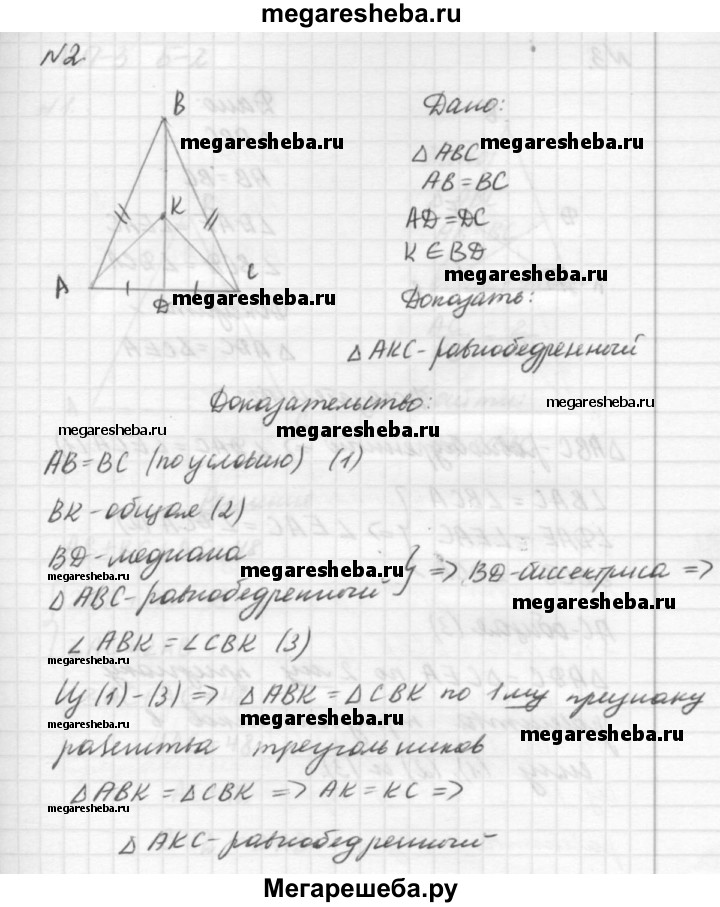 megaresheba.ru
N2.
B
K
A
C
D
Дано:
megaresheba.ru
megaresheba.ru
△ABC
AB = BC
AD = DC
K ∈ BD
megaresheba.ru
megaresheba.ru
Доказать:
△AKC - равнобедренный
Доказательство:
megaresheba.ru
megaresheba.ru
megaresheba.ru
AB = BC (по условию) (1)
BK - общая (2)
BD - медиана
megaresheba.ru
megaresheba.ru
△ABC - равнобедренный } => BD - биссектриса =>
megaresheba.ru
∠ABK = ∠CBK (3)
megaresheba.ru
Из (1) - (3) => △ABK = △CBK по 1му признаку
megaresheba.ru
megaresheba.ru
равенства треугольников
△ABK = △CBK => AK = KC =>
megaresheba.ru
megaresheba.ru
△AKC - равнобедренный
Мегарешеба.ру